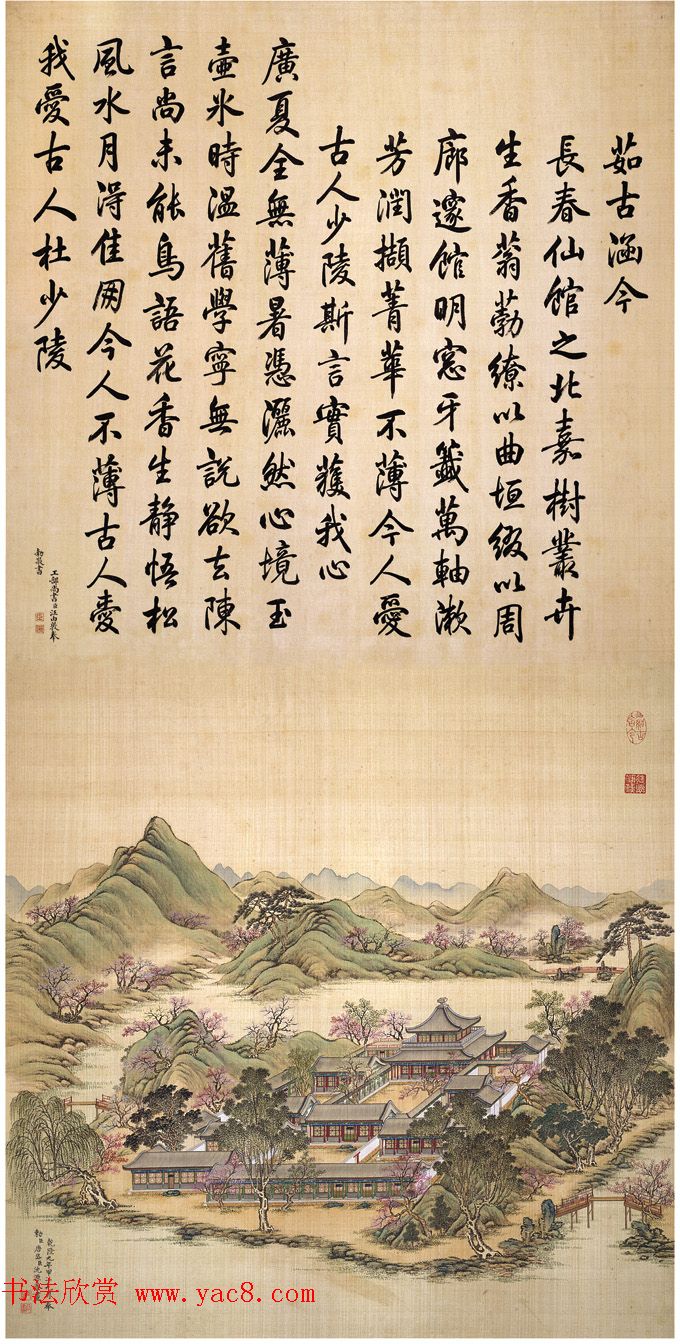 茹古涵今
長春仙館之北嘉樹叢卉
生香蓊葧繚以曲垣綴以周
廊邃館明窓牙籤萬軸漱
芳潤擷菁華不薄今人愛
古人少陵斯言實獲我心
廣夏全無薄暑憑灑然心境玉
壺氷時溫舊學寧無說欲去陳
言尚未能鳥語花香生靜悟松
風水月淂佳朋今人不薄古人愛
我愛古人杜少陵
工部尚書臣汪由敦奉
勅敬書
乾隆九年甲
勅臣唐岱臣沈源
书法欣赏 www.yac8.com